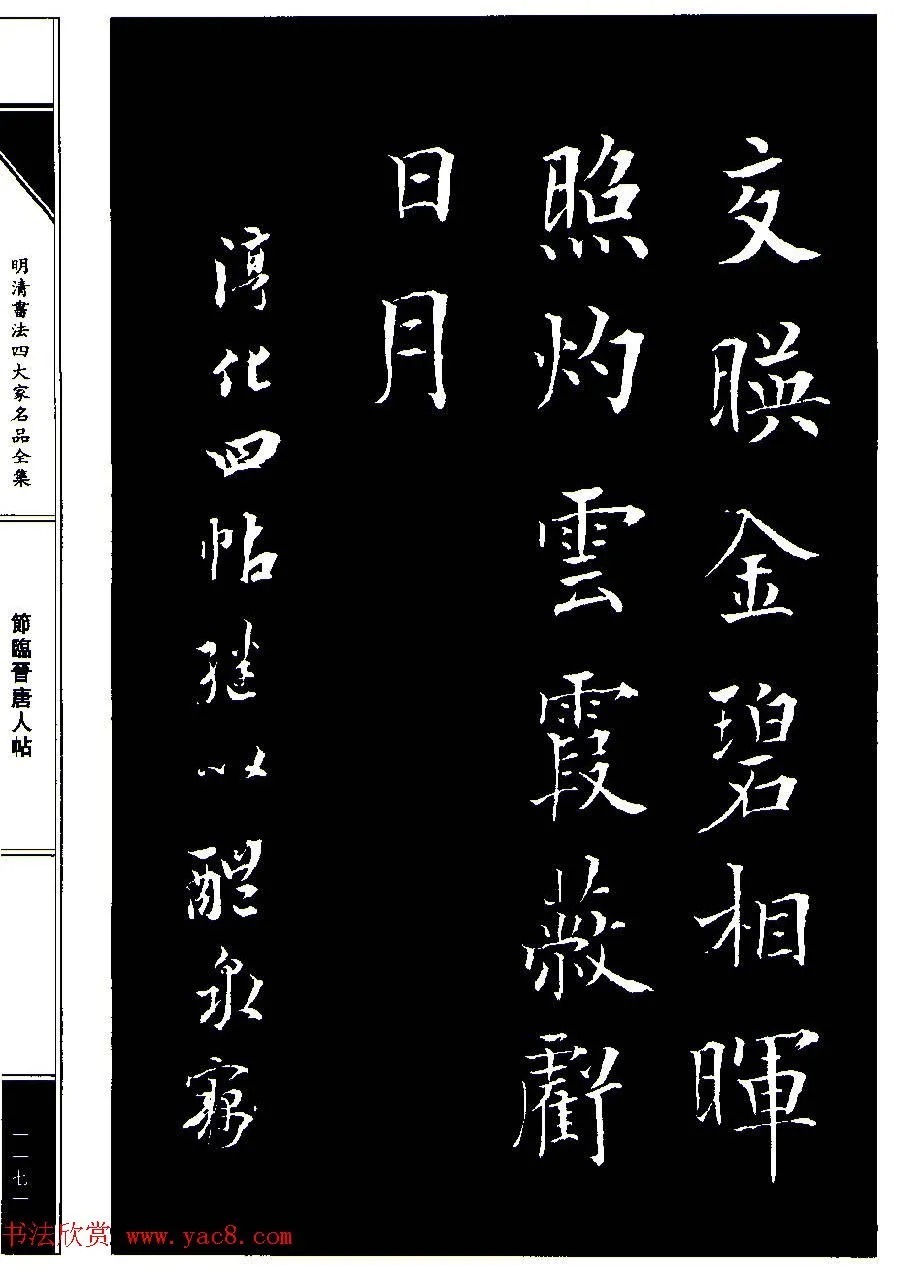 交暎金碧相暉
照灼雲霞蔽虧
日月
淳化四帖继以醴泉竊
明清書法四大家名品全集
節臨晉唐人帖
一一七
书法欣赏 www.yac8.com